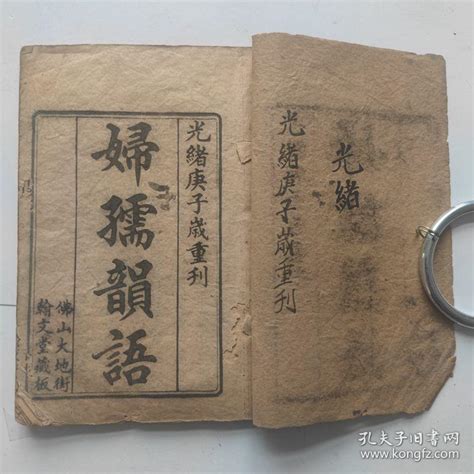 光緒
光緒庚子歲重刊
光緒庚子歲重刊
婦孺韻語
佛山大地街
翰文堂藏板
孔夫子旧书网
www.kongfz.com